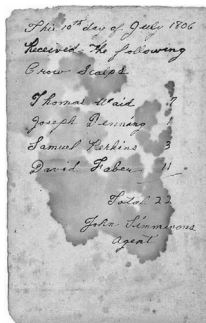 This 10th day of July 1806
Received the following
Crow Scalps
Thomas Waid 7
Joseph Denning 1
Samuel Perkins 3
David Faber 11
Total 22
John Simmons
Agent